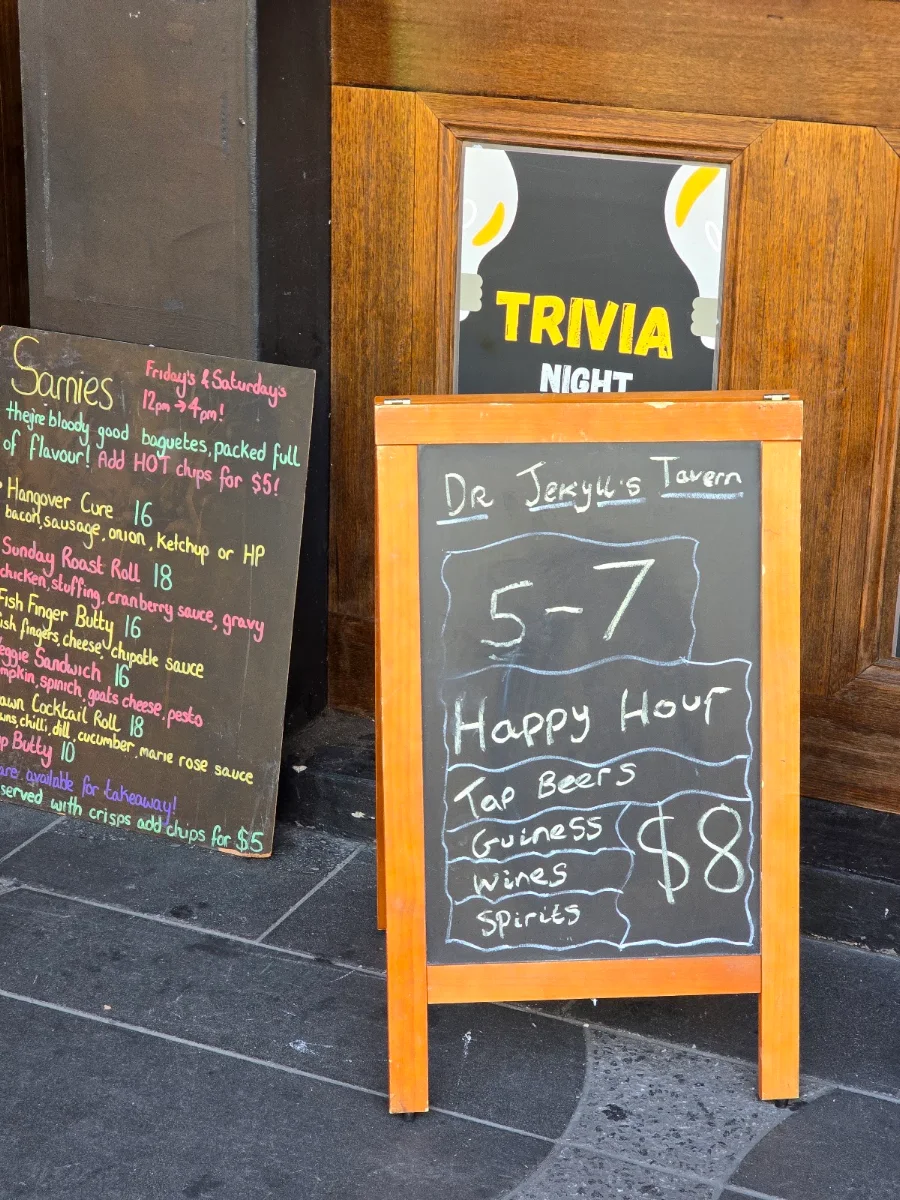 Sarnies
Friday's & Saturday's
12pm → 4pm!
they're bloody good baguetes, packed full
of flavour! Add HOT chips for $5!
Hangover Cure 16
bacon, sausage, onion, Ketchup or HP
Sunday Roast Roll 18
chicken, stuffing, cranberry sauce, gravy
Fish Finger Butty 16
fish fingers, cheese, chipotle sauce
Sandwich 16
spinich, goats cheese, pesto
Cocktail Roll 18
chilli, dill, cucumber, marie rose sauce
Butty 10
are available for takeaway!
served with crisps add chips for $5
TRIVIA
NIGHT
Dr Jekyll's Tavern
5-7
Happy Hour
Tap Beers
Guiness
Wines
Spirits
$8